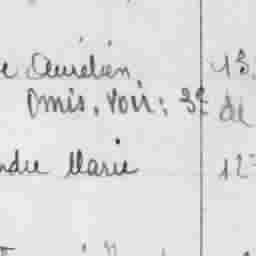 e Aurélien 13
Omis, voir: 3e de
ndre Marie 12